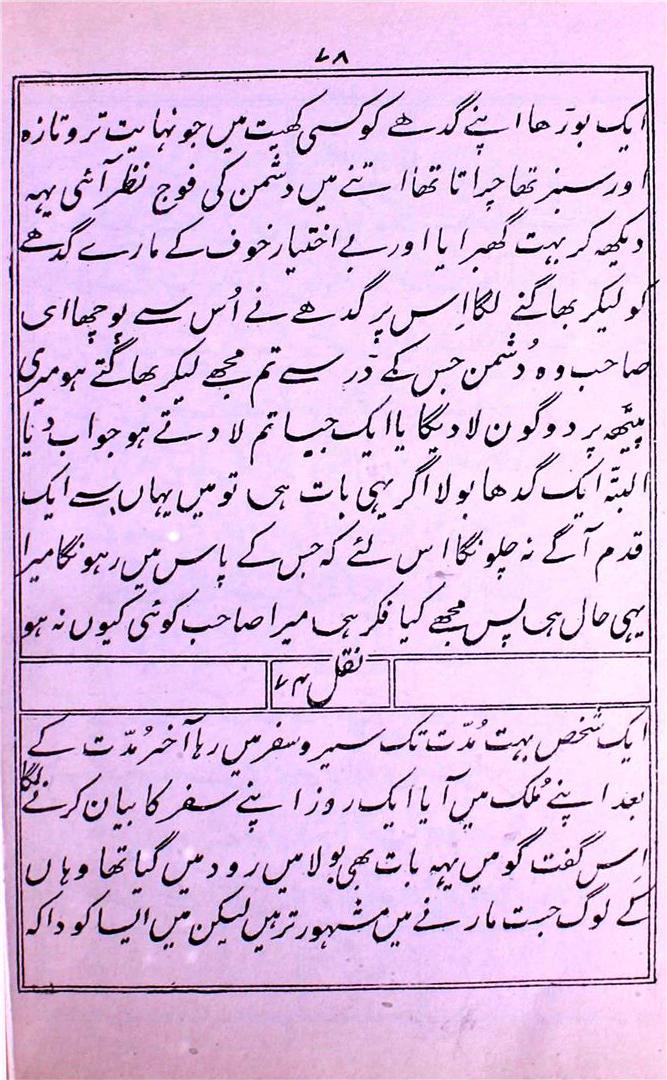 ۷۸
ایک بوڑھا اپنے گدھے کو کسی کھیت میں جو نہایت تر و تازہ
اور سبز تھا چراتا تھا اتنے میں دشمن کی فوج نظر آئی یہہ
دیکھہ کر بہت گھبرایا اور بے اختیار خوف کے مارے گدھے
کو لیکر بھاگنے لگا اِس پر گدھے نے اُس سے پوچھا ای
صاحب وہ دُشمن جس کے ڈر سے تم مجھے لیکر بھاگتے ہو میری
پیٹھہ پر دو گون لادیگا یا ایک جیسا تم لادتے ہو جواب دیا
البتّہ ایک گدھا بولا اگر یہی بات ہی تو میں یہاں سے ایک
قدم آگے نہ چلونگا اس لئے کہ جس کے پاس میں رہونگا میرا
یہی حال ہی پس مجھے کیا فکر ہی میرا صاحب کوئی کیوں نہ ہو
نقل ۷۴
ایک شخص بہت مُدّت تک سیر و سفر میں رہا آخر مُدّت کے
بعد اپنے مُلک میں آیا ایک روز اپنے سفر کا بیان کرنے لگا
اِس گفت گو میں یہہ بات بھی بولا میں رود میں گیا تھا وہاں
کے لوگ جست مارنے میں مشہور تر ہیں لیکن میں ایسا کودا کہ